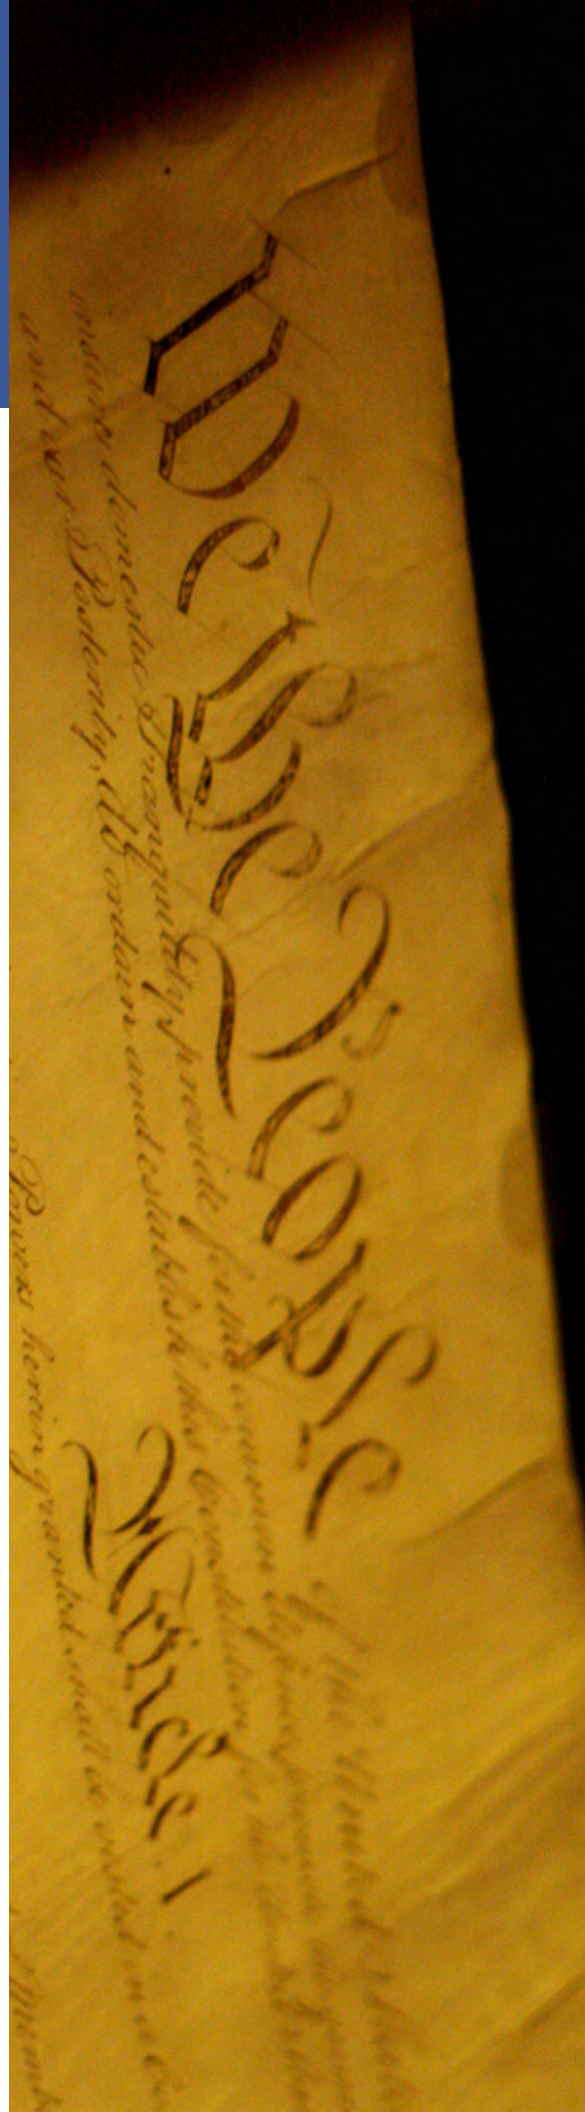 We the People of the United States
insure domestic Tranquility, provide for the common defence, promote
and our Posterity, do ordain and establish this Constitution for the United
Article. I
Powers herein granted shall be vested in a